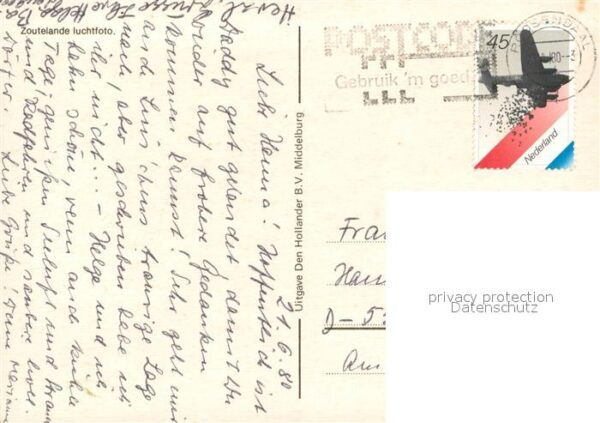 Zoutelande luchtfoto.
Uitgave Den Hollander B.V. Middelburg
POSTCODE
Gebruik 'm goed.
45
Nederland
21.6.80
Liebe Hanna! Hoffentlich ist
Daddy gut gelandet, damit Du
wieder auf frohere Gedanken
kommen kannst! Sehr geht mir
an die Luis ihre traurige Lage
nach, aber geschrieben habe ich
ihr nicht... - Helge und ich
haben schöne, wenn auch kühle
Tage, genießen Seeluft und Strand
und Radfahren und
Liebe Grüße! Deine
Herzl. Grüsse Ihre Helga
Frau
Han
D-53
Am
privacy protection
Datenschutz